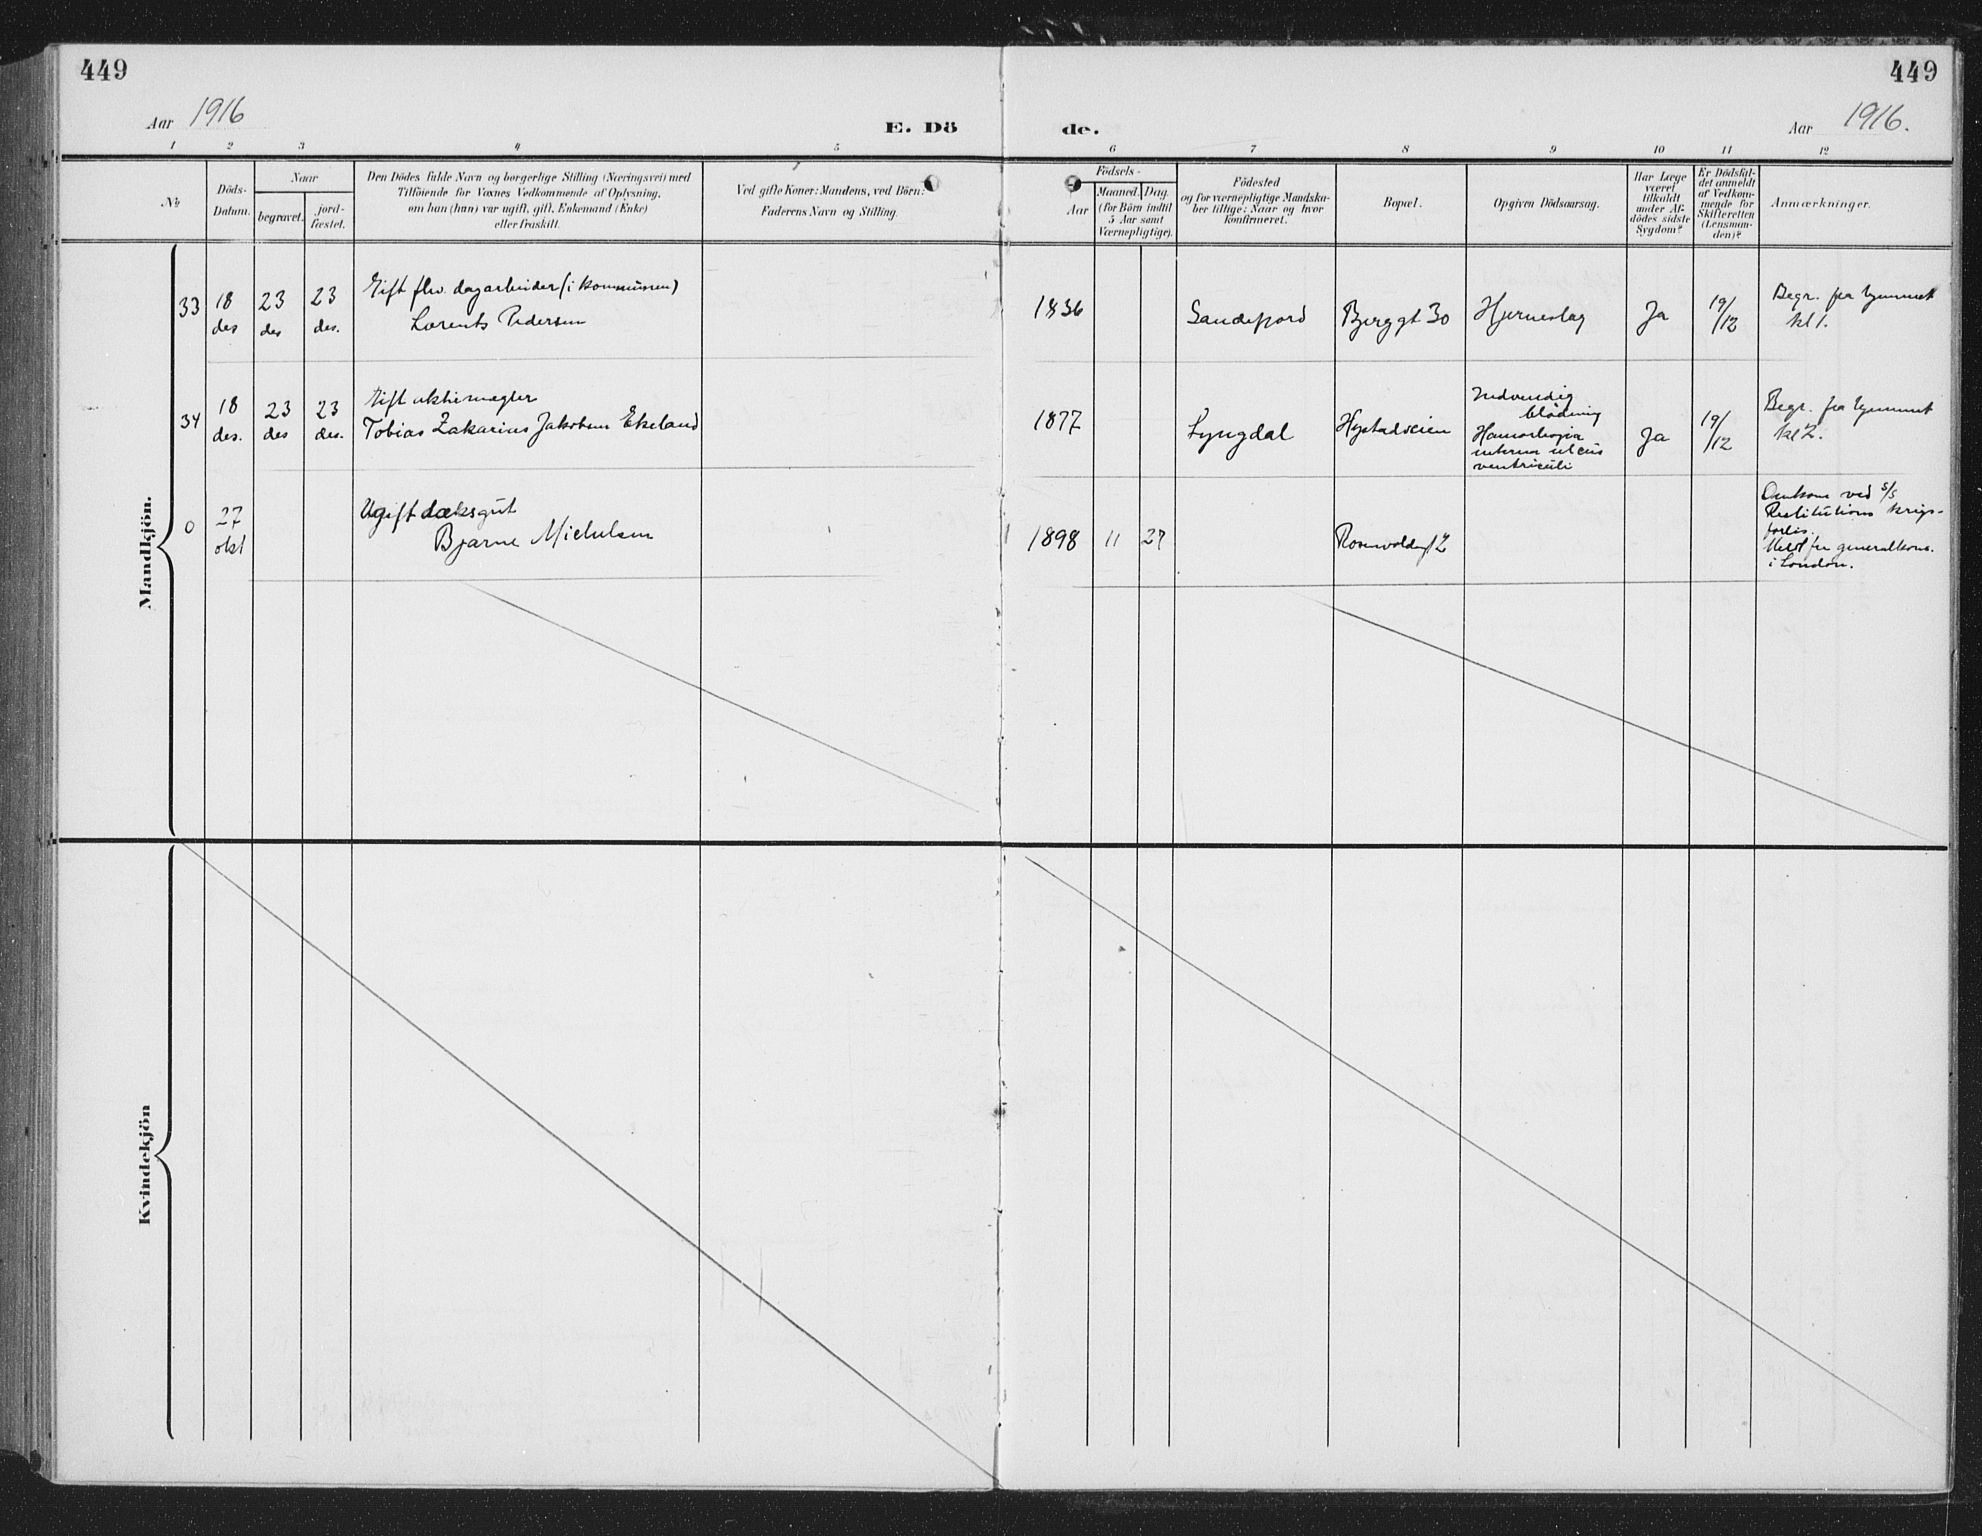 449
449
Aar 1916
E. Dö
de.
Aar 1916.
1 2 3 4 5 6 7 8 9 10 11 12
No
Döds-
Datum.
Naar
begravet.
jord-
fæstet.
Den Dödes fulde Navn og borgerlige Stilling (Næringsvei) med
Tilföiende for Voxnes Vedkommende af Oplysning,
om han (hun) var ugift, gift, Enkemand (Enke)
eller fraskilt.
Ved gifte Koner: Mandens, ved Börn:
Faderens Navn og Stilling.
Födsels-
Aar
Maaned. Dag.
(for Börn indtil
5 Aar samt
Værnepligtige).
Födested
og for værnepligtige Mandska-
ber tillige: Naar og hvor
konfirmeret.
Bopæl.
Opgiven Dödsaarsag.
Har Læge
været
tilkaldt
under Af-
dödes sidste
Sygdom?
Er Dödsfal-
det anmeldt
af Vedkom-
mende for
Skifteretten
(Lensman-
den)?
Anmærkninger.
Mandkjön.
33
18
des
23
des
23
des.
Gift flv. dagarbeider (i kommunen)
Lorents Pedersen
1836
Sandefjord
Bjerggt 30
Hjerneslag
Ja
19/12
Begr. fra hjemmet
kl 1.
34
18
des.
23
des
23
des.
Gift aktiemægler
Tobias Zakarius Jakobsen Ekeland
1877
Lyngdal
Hystadveien
Indvendig
blødning
interna ulcus
ventriculi
Ja
19/12
Begr. fra hjemmet
kl 2.
0
27
okt
Ugift dæksgut
Bjarne Michelsen
1898 11 27
Omkom ved s/s
Restitutions krigs-
forlis.
Meldt fra generalkons.
i London.
Kvindekjön